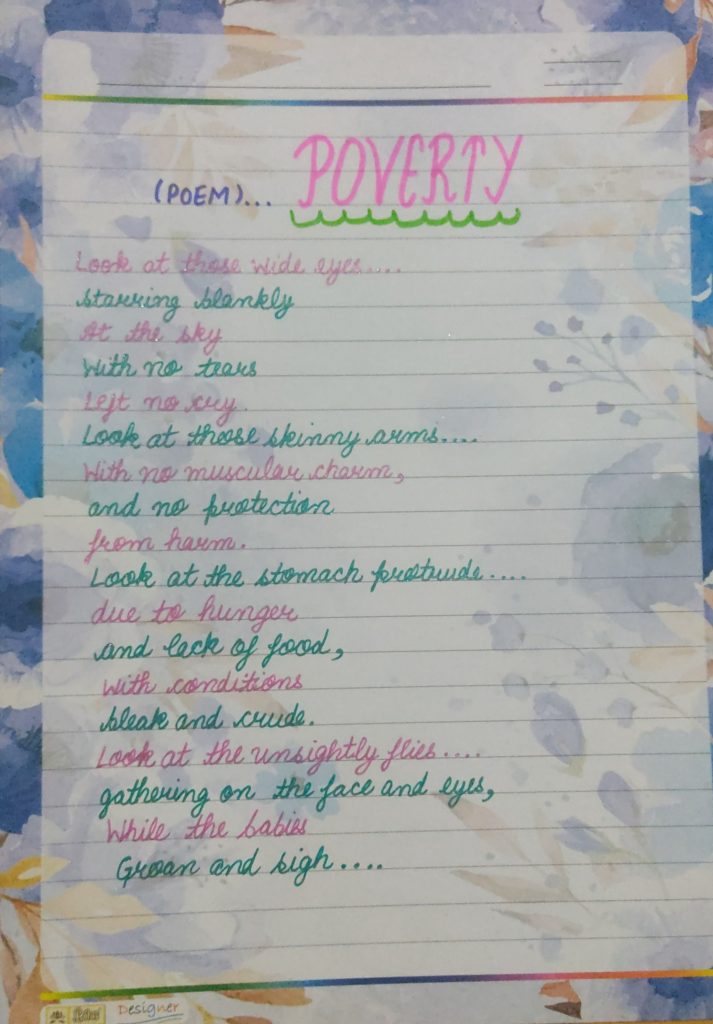 (POEM)... POVERTY
Look at those wide eyes....
starring blankly
At the sky
With no tears
Left no cry.
Look at those skinny arms....
With no muscular charm,
and no protection
from harm.
Look at the stomach protrude....
due to hunger
and lack of food,
With conditions
bleak and crude.
Look at the unsightly flies....
gathering on the face and eyes,
While the babies
Groan and sigh....
Designer